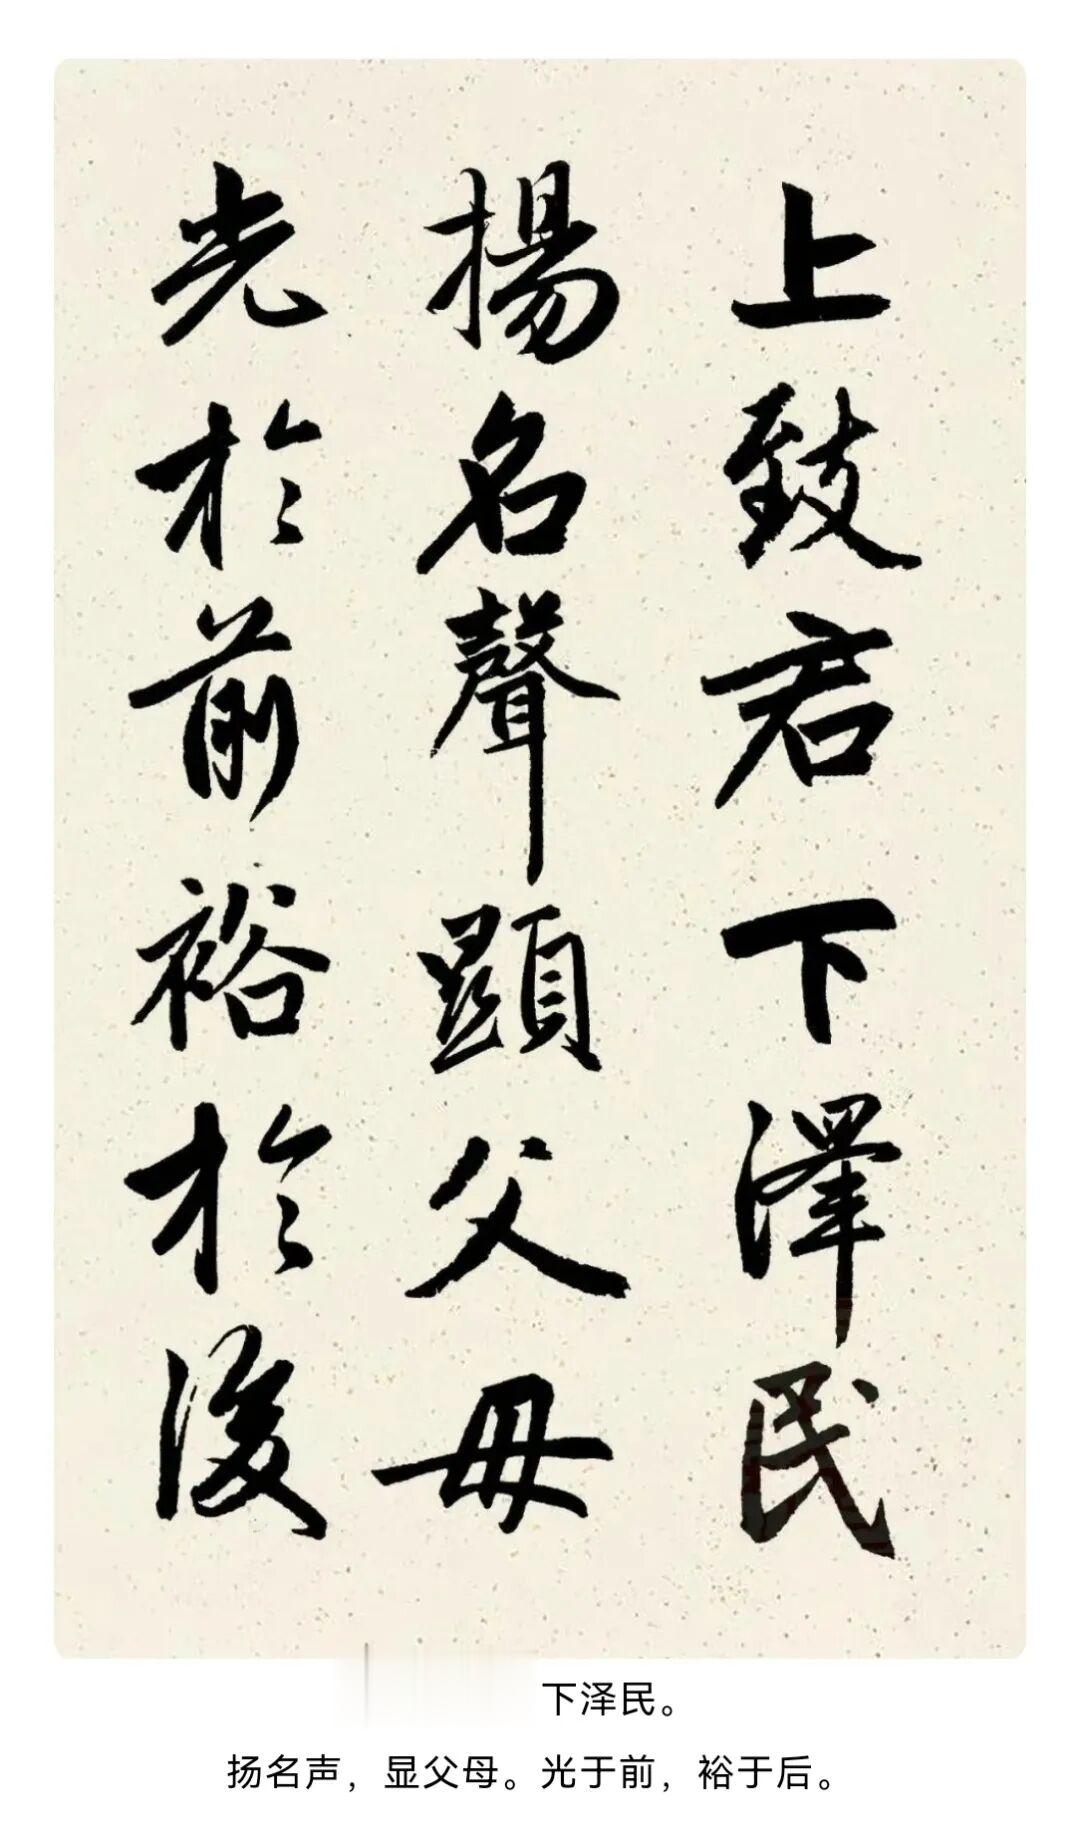 上致君下澤民
揚名聲顯父母
光於前裕於後
下泽民。
扬名声，显父母。光于前，裕于后。